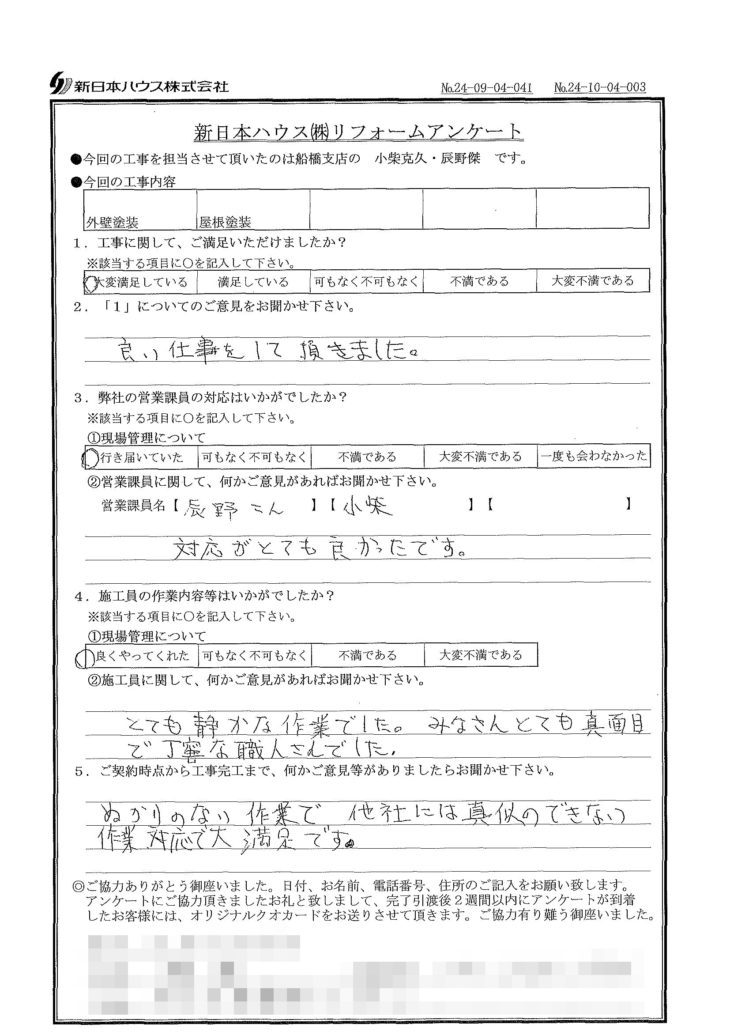 新日本ハウス株式会社 No.24-09-04-041 No.24-10-04-003
新日本ハウス㈱リフォームアンケート
●今回の工事を担当させて頂いたのは船橋支店の 小柴克久・辰野傑 です。
●今回の工事内容
外壁塗装 屋根塗装
1．工事に関して、ご満足いただけましたか？
※該当する項目に○を記入して下さい。
大変満足している 満足している 可もなく不可もなく 不満である 大変不満である
2．「1」についてのご意見をお聞かせ下さい。
良い仕事をして頂きました。
3．弊社の営業課員の対応はいかがでしたか？
※該当する項目に○を記入して下さい。
①現場管理について
行き届いていた 可もなく不可もなく 不満である 大変不満である 一度も会わなかった
②営業課員に関して、何かご意見があればお聞かせ下さい。
営業課員名【 辰野さん 】【 小柴 】【 】
対応がとても良かったです。
4．施工員の作業内容等はいかがでしたか？
※該当する項目に○を記入して下さい。
①現場管理について
良くやってくれた 可もなく不可もなく 不満である 大変不満である
②施工員に関して、何かご意見があればお聞かせ下さい。
とても静かな作業でした。みなさんとても真面目
で丁寧な職人さんでした。
5．ご契約時点から工事完工まで、何かご意見等がありましたらお聞かせ下さい。
ぬかりのない作業で 他社には真似のできない
作業対応で大満足です。
◎ご協力ありがとう御座いました。日付、お名前、電話番号、住所のご記入をお願い致します。
アンケートにご協力頂きましたお礼と致しまして、完了引渡後2週間以内にアンケートが到着
したお客様には、オリジナルクオカードをお送りさせて頂きます。ご協力有り難う御座いました。